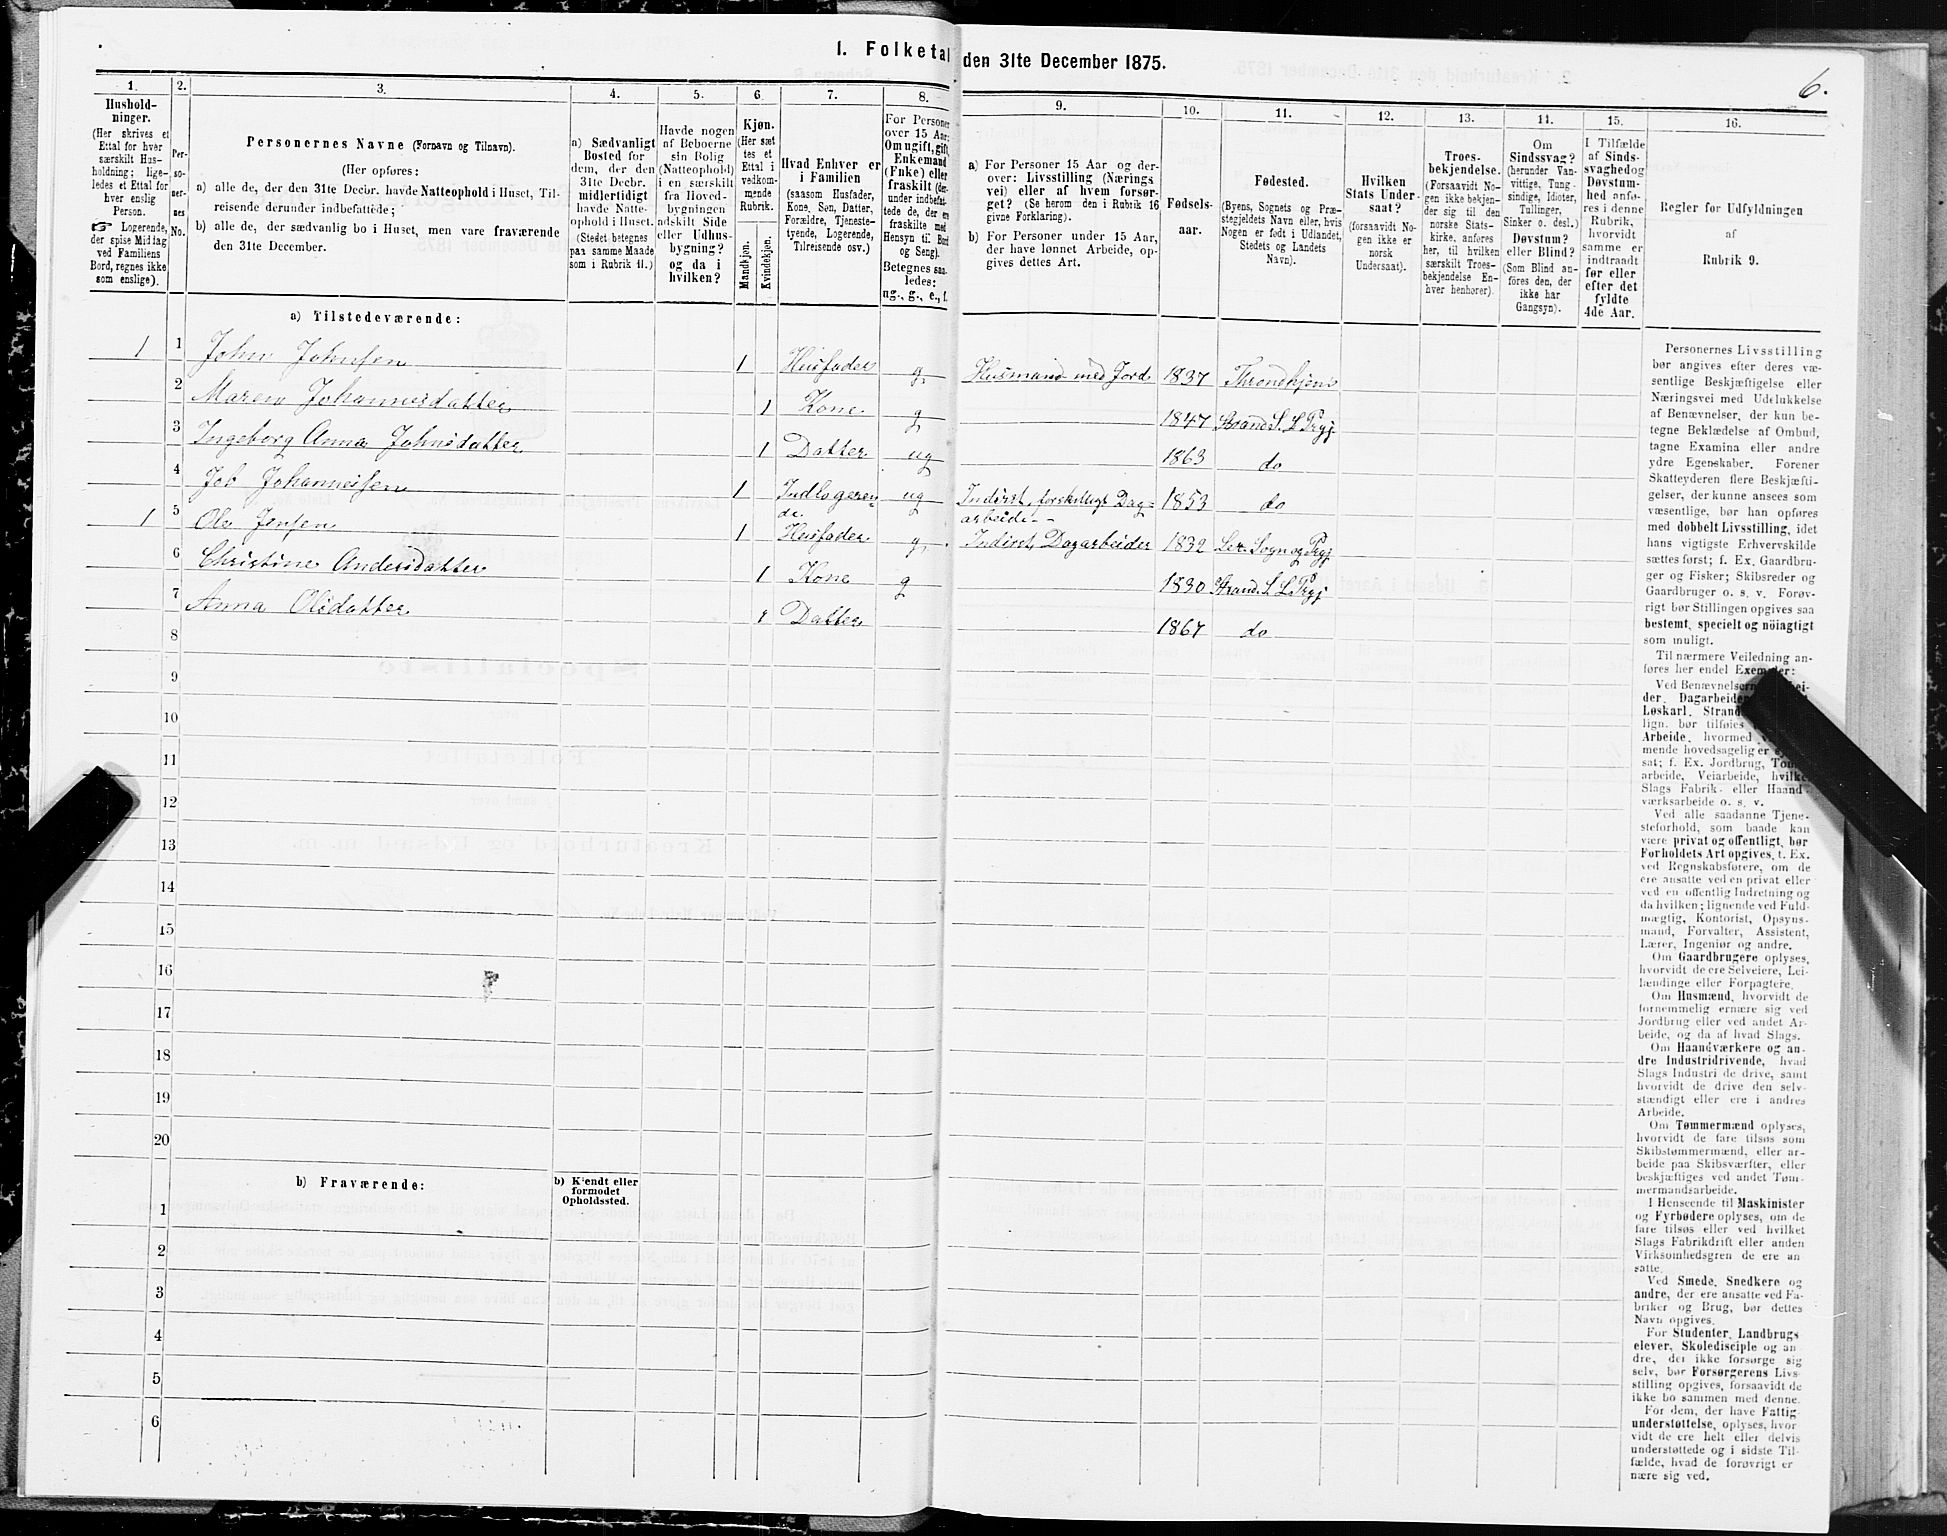 1. Folketal den 31te December 1875.
6.
1.
Hushold-
ninger.
(Her skrives et
Ettal for hver
særskilt Hus-
holdning; lige-
ledes et Ettal for
hver enslig
Person.
☞ Logerende,
der spise Middag
ved Familiens
Bord, regnes ikke
som enslige).
2.
Per-
so-
ner-
nes
No.
3.
Personernes Navne (Fornavn og Tilnavn).
(Her opføres:
a) alle de, der den 31te Decbr. havde Natteophold i Huset, Til-
reisende derunder indbefattede;
b) alle de, der sædvanlig bo i Huset, men vare fraværende
den 31te December.
4.
a) Sædvanligt
Bosted for
dem, der den
31te Decbr.
midlertidigt
havde Natte-
ophold i Huset.
(Stedet betegnes
paa samme Maade
som i Rubrik 11.)
5.
Havde nogen
af Beboerne
sin Bolig
(Natteophold)
i en særskilt
fra Hoved-
bygningen
adskilt Side
eller Udhus-
bygning?
og da i
hvilken?
6.
Kjøn.
(Her sæt
tes et
Ettal i
vedkom-
mende
Rubrik.
Mandkjøn.
Kvindekjøn.
7.
Hvad Enhver er
i Familien
(saasom Husfader,
Kone, Søn, Datter,
Forældre, Tjeneste-
tyende, Logerende,
Tilreisende osv.)
8.
For Personer
over 15 Aar:
Om ugift, gift,
Enkemand
(Enke) eller
fraskilt (der-
under indbefat-
tede de, der er
fraskilte med
Hensyn til Bord
og Seng).
Betegnes saa-
ledes:
ug., g., e., f.
9.
a) For Personer 15 Aar og der-
over: Livsstilling (Nærings
vei) eller af hvem forsør-
get? (Se herom den i Rubrik 16
givne Forklaring).
b) For Personer under 15 Aar,
der have lønnet Arbeide, op-
gives dettes Art.
10.
Fødsels-
aar.
11.
Fødested.
(Byens, Sognets og Præ-
stegjeldets Navn eller, hvis
Nogen er født i Udlandet,
Stedets og Landets
Navn).
12.
Hvilken
Stats Under-
saat?
(forsaavidt No-
gen ikke er
norsk
Undersaat).
13.
Troes-
bekjendelse.
(Forsaavidt No-
gen ikke bekjen-
der sig til den
norske Stats-
kirke, anføres
her, til hvilken
særskilt Troes-
bekjendelse En-
hver henhører).
14.
Om
Sindssvag?
(herunder Van-
vittige, Tung-
sindige, Idioter,
Tullinger,
Sinker o. desl.)
Døvstum?
eller Blind?
(Som Blind an-
føres den, der
ikke har
Gangsyn).
15.
I Tilfælde
af Sinds-
svaghed og
Døvstum-
hed anfø-
res i denne
Rubrik,
hvorvidt
samme er
indtraadt
før eller
efter det
fyldte
4de Aar.
16.
Regler for Udfyldningen
af
Rubrik 9.
a) Tilstedeværende:
1 1 John Johnsen 1 Husfader g. Husmand med Jord 1837 Throndhjem
2 Maren Johannesdatter 1 Kone g 1847 Strand S. L Prgj
3 Ingeborg Anna Johnsdatter 1 Datter ug 1863 do
4 Job Johannesen 1 Indlogeren-
de. ug Inderst, forskilligt Dag-
arbeide- 1853 do
1 5 Ole Jensen 1 Husfader g. Inderst, Dagarbeider 1832 Sogn og Prgj
6 Christine Andersdatter 1 Kone g 1830 Strand S. L Prgj
7 Anna Olsdatter 1 Datter 1867 do
8
9
10
11
12
13
14
15
16
17
18
19
20
b) Fraværende:
b) Kjendt eller
formodet
Opholdssted.
1
2
3
4
5
6
Personernes Livsstilling
bør angives efter deres væ-
sentlige Beskjæftigelse eller
Næringsvei med Udelukkelse
af Benævnelser, der kun be-
tegne Beklædelse af Ombud,
tagne Examina eller andre
ydre Egenskaber. Forener
Skatteyderen flere Beskjæfti-
gelser, der kunne ansees som
væsentlige, bør han opføres
med dobbelt Livsstilling, idet
hans vigtigste Erhvervskilde
sættes først; f. Ex. Gaardbru-
ger og Fisker; Skibsreder og
Gaardbruger o. s. v. Forøv-
rigt bør Stillingen opgives saa
bestemt, specielt og nöiagtigt
som muligt.
Til nærmere Veiledning an-
føres her endel Exempler:
Ved Benævnelsern
der, Dagarbeider
Løskarl, Strand
lign. bør tilføies
Arbeide, hvormed
mende hovedsagelig er
sat; f. Ex. Jordbrug, Tom
arbeide, Veiarbeide, hvilke
Slags Fabrik- eller Haand-
værksarbeide o. s. v.
Ved alle saadanne Tjene-
steforhold, som baade kan
være privat og offentligt, bør
Forholdets Art opgives, t. Ex.
ved Regnskabsførere, om de
ere ansatte ved en privat eller
ved en offentlig Indretning og
da hvilken; lignende ved Fuld-
mægtig, Kontorist, Opsyns-
mand, Forvalter, Assistent,
Lærer, Ingeniør og andre.
Om Gaardbrugere oplyses,
hvorvidt de ere Selveiere, Lei-
lændinge eller Forpagtere.
Om Husmænd, hvorvidt de
fornemmelig ernære sig ved
Jordbrug eller ved andet Ar-
beide, og da af hvad Slags.
Om Haandværkere og an-
dre Industridrivende, hvad
Slags Industri de drive, samt
hvorvidt de drive den selv-
stændigt eller ere i andres
Arbeide.
Om Tømmermænd oplyses,
hvorvidt de fare tilsøs som
Skibstømmermænd, eller ar-
beide paa Skibsværfter, eller
beskjæftiges ved andet Tøm-
mermandsarbeide.
I Henseende til Maskinister
og Fyrbødere oplyses, om de
fare tilsøs eller ved hvilket
Slags Fabrikdrift eller anden
Virksomhedsgren de ere an-
satte.
Ved Smede, Snedkere og
andre, der ere ansatte ved Fa-
briker og Brug, bør dettes
Navn opgives.
For Studenter, Landbrugs
elever, Skoledisciple og an-
dre, der ikke forsørge sig
selv, bør Forsørgerens Livs-
stilling opgives, forsaavidt de
ikke bo sammen med denne.
For dem, der have Fattig-
understøttelse, oplyses, hvor
vidt de ere helt eller delvis
understøttede og i sidste Til-
fælde, hvad de forøvrigt er
nære sig ved.